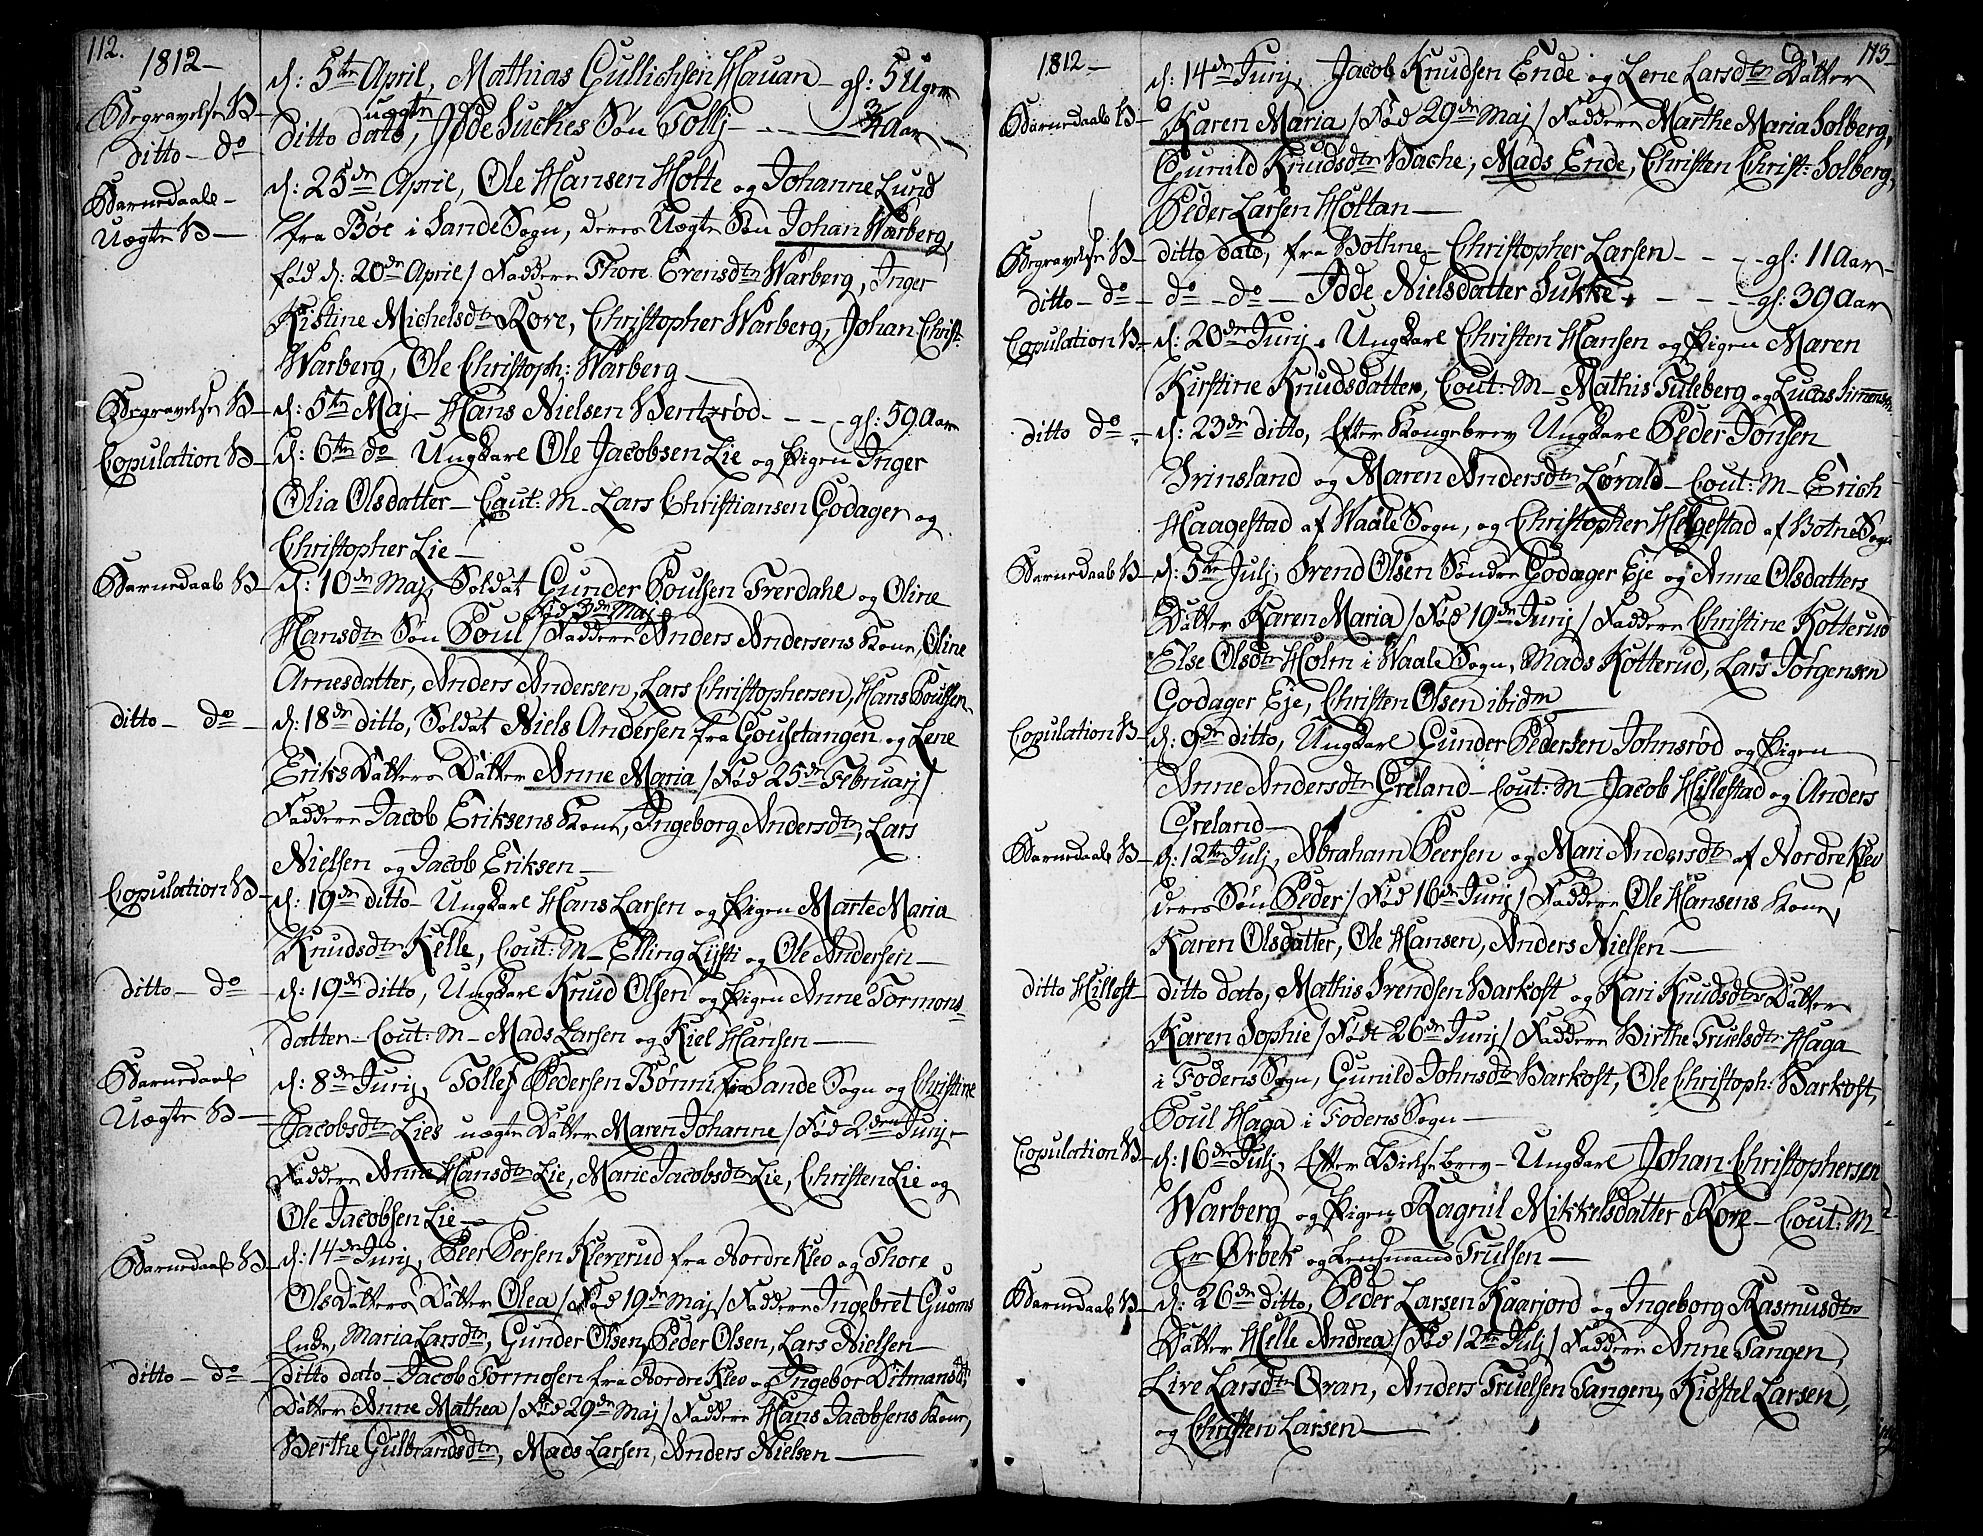 112.
1812 –
Begravelse B – d: 5te April, Mathias Gullichsen Hauan – gl: 5 Uger
ditto – do ditto dato, Idde Suckes uægte Søn Tollj – – – 3/4 Aar
Barnedaab – d: 25de April, Ole Hansen Holte og Johanne Lund
Uægte B – fra Bøe i Sande Sogn, deres Uægte Søn Johan Warberg,
fød d: 20de April / Faddere Thore Erensdtr Warberg, Inger
Kistine Michelsdtr Røre, Christopher Warberg, Johan Christ:
Warberg, Ole Christoph: Warberg
Begravelse B – d: 5te Maj – Hans Nielsen Bentzrød – – – gl: 59 Aar
Copulation B – d: 6te do Ungkarl Ole Jacobsen Lie og Pigen Inger
Olia Olsdatter – Cout: M – Lars Christiansen Godager og
Christopher Lie –
Barnedaab B – d: 10de Maj, Soldat Gunder Poulsen Trerdahl og Oline
Hansdtr Søn Poul / fød 3de Maj / Faddere Anders Andersens Kone, Oline
Arnesdatter, Anders Andersen, Lars Christophersen, Hans Poulsen
ditto – do – d: 18de ditto, Soldat Niels Andersen fra Goulsetangen og Lene
Eriks Datters Datter Anne Maria / Fød 25de Februarj /
Faddere Jacob Eriksens Kone, Ingeborg Andersdtr, Lars
Nielsen og Jacob Eriksen –
Copulation B – d: 19de ditto – Ungkarl Hans Larsen og Pigen Marte Maria
Knudsdtr Kelle, Cout: M – Elling Lysti og Ole Andersen –
ditto – do – d: 19de ditto, Ungkarl Knud Olsen og Pigen Anne Tormons-
datter – Cout: M – Mads Larsen og Kiel Hansen –
Barnedaab d: 8de Junj, Tollef Pedersen Bønni fra Sande Sogn og Christine
Uægte B – Jacobsdtr Lies uægte Datter Maren Johanne / Fød 2den Junj –
Faddere Anne Hansdtr Lie, Marie Jacobsdtr Lie, Christen Lie og
Ole Jacobsen Lie –
Barnedaab B – d: 14de Junj, Peer Persen Klererud fra Nordre Klev og Thore
Ols Datters Datter Olea / Fød 19de Maj / Faddere Ingebret Guoms
Ende, Maria Larsdtr, Gunder Olsen, Peder Olsen, Lars Nielsen
ditto – do – Ditto dato – Jacob Tormosen fra Nordre Klev og Ingebor Ditmansdtr
Datter Anne Mathea / Fød 29de Maj / Faddere Hans Jacobsens Kone,
Berthe Gulbrandsdtr, Mads Larsen, Anders Nielsen –
113
1812 –
d: 14de Junj, Jacob Knudsen Ende og Lene Larsdtr Datter
Barnedaab B – Karen Maria / Fød 29de Maj / Faddere Marthe Maria Solberg,
Gunild Knudsdtr Bache, Mads Ende, Christen Christ: Solberg,
Peder Larsen Holtan –
Begravelse B – ditto dato, fra Bothne – Christopher Larsen – – – gl: 11 Aar –
ditto – do – do – do – Idde Nielsdatter Sukke – – – gl: 39 Aar
Copulation B – d: 20de Junj, Ungkarl Christen Hansen og Pigen Maren
Kirstine Knudsdatter, Cout: M – Mathis Fuleberg og Lucas Simensen
ditto do – d: 23de ditto, Efter Kongebrev Ungkarl Peder Jonsen
Trinsland og Maren Andersdtr Lørald – Cout: M – Erich
Haagestad af Waale Sogn, og Christopher Helgestad af Botne Sogn
Barnedaab B – d: 5te Julj, Svend Olsen Søndre Godager Eje og Anne Olsdatters
Datter Karen Maria / Fød 19de Junj / Faddere Christine Kotterud
Else Olsdtr Holm i Waale Sogn, Mads Kotterud, Lars Jørgensen
Godager Eje, Christen Olsen ibidm
Copulation B – d: 9de ditto, Ungkarl Gunder Pedersen Johnsrød og Pigen
Anne Andersdtr Greland – Cout: M – Jacob Hillestad og Anders
Greland –
Barnedaab B – d: 12te Julj, Abraham Peersen og Mari Andersdtr af Nordre Klev
deres Søn Peder / Fød 16de Junj / Faddere Ole Hansens Kone,
Karen Olsdatter, Ole Hansen, Anders Nielsen –
ditto Hillest – ditto dato, Mathis Svendsen Barkost og Kari Knudsdtrs Datter
Karen Sophie / Født 26de Junj / Faddere Birthe Truelsdtr Haga
i Fodens Sogn, Gunild Johnsdtr Barkost, Ole Christoph: Barkost,
Poul Haga i Fodens Sogn –
Copulation B – d: 16de Julj, Efter Bielsebrev – Ungkarl Johan Christophersen
Warberg og Pigen Ragnil Mikkelsdatter Røre – Cout: M
Hr Ørbek og Lensmand Trulsen –
Barnedaab B – d: 26de ditto, Peder Larsen Kaarjord og Ingeborg Rasmusdtrs
Datter Helle Andrea / Fød 12te Julj / Faddere Anne Tangen,
Live Larsdtr Qvan, Anders Truelsen Tangen, Kistel Larsen,
og Christen Larsen –